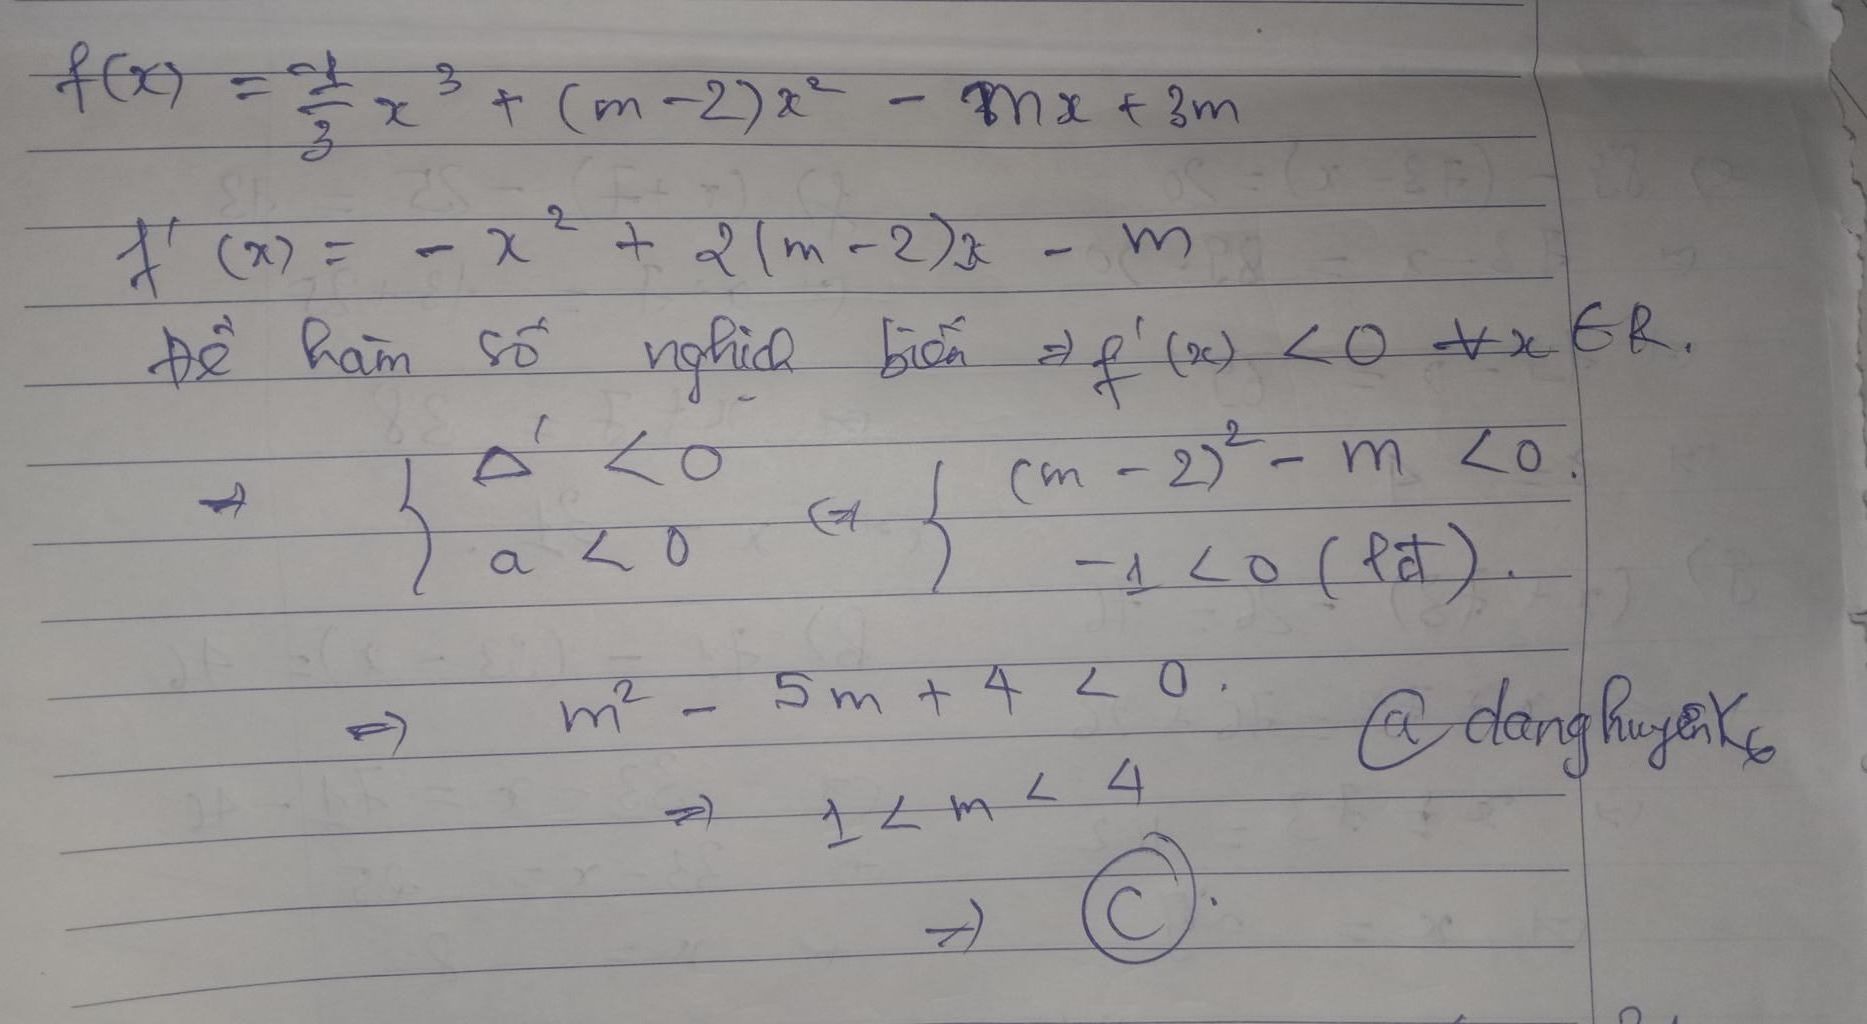 f(x) = -1/3 x³ + (m-2)x² - mx + 3m
f'(x) = -x² + 2(m-2)x - m
Để hàm số nghịch biến ⇒ f'(x) < 0 ∀x ∈ R.
⇒ { Δ' < 0 ; a < 0 ⇔ { (m-2)² - m < 0. ; -1 < 0 (lđ).
⇒ m² - 5m + 4 < 0.
@danghuyenk6
⇒ 1 < m < 4
⇒ C.